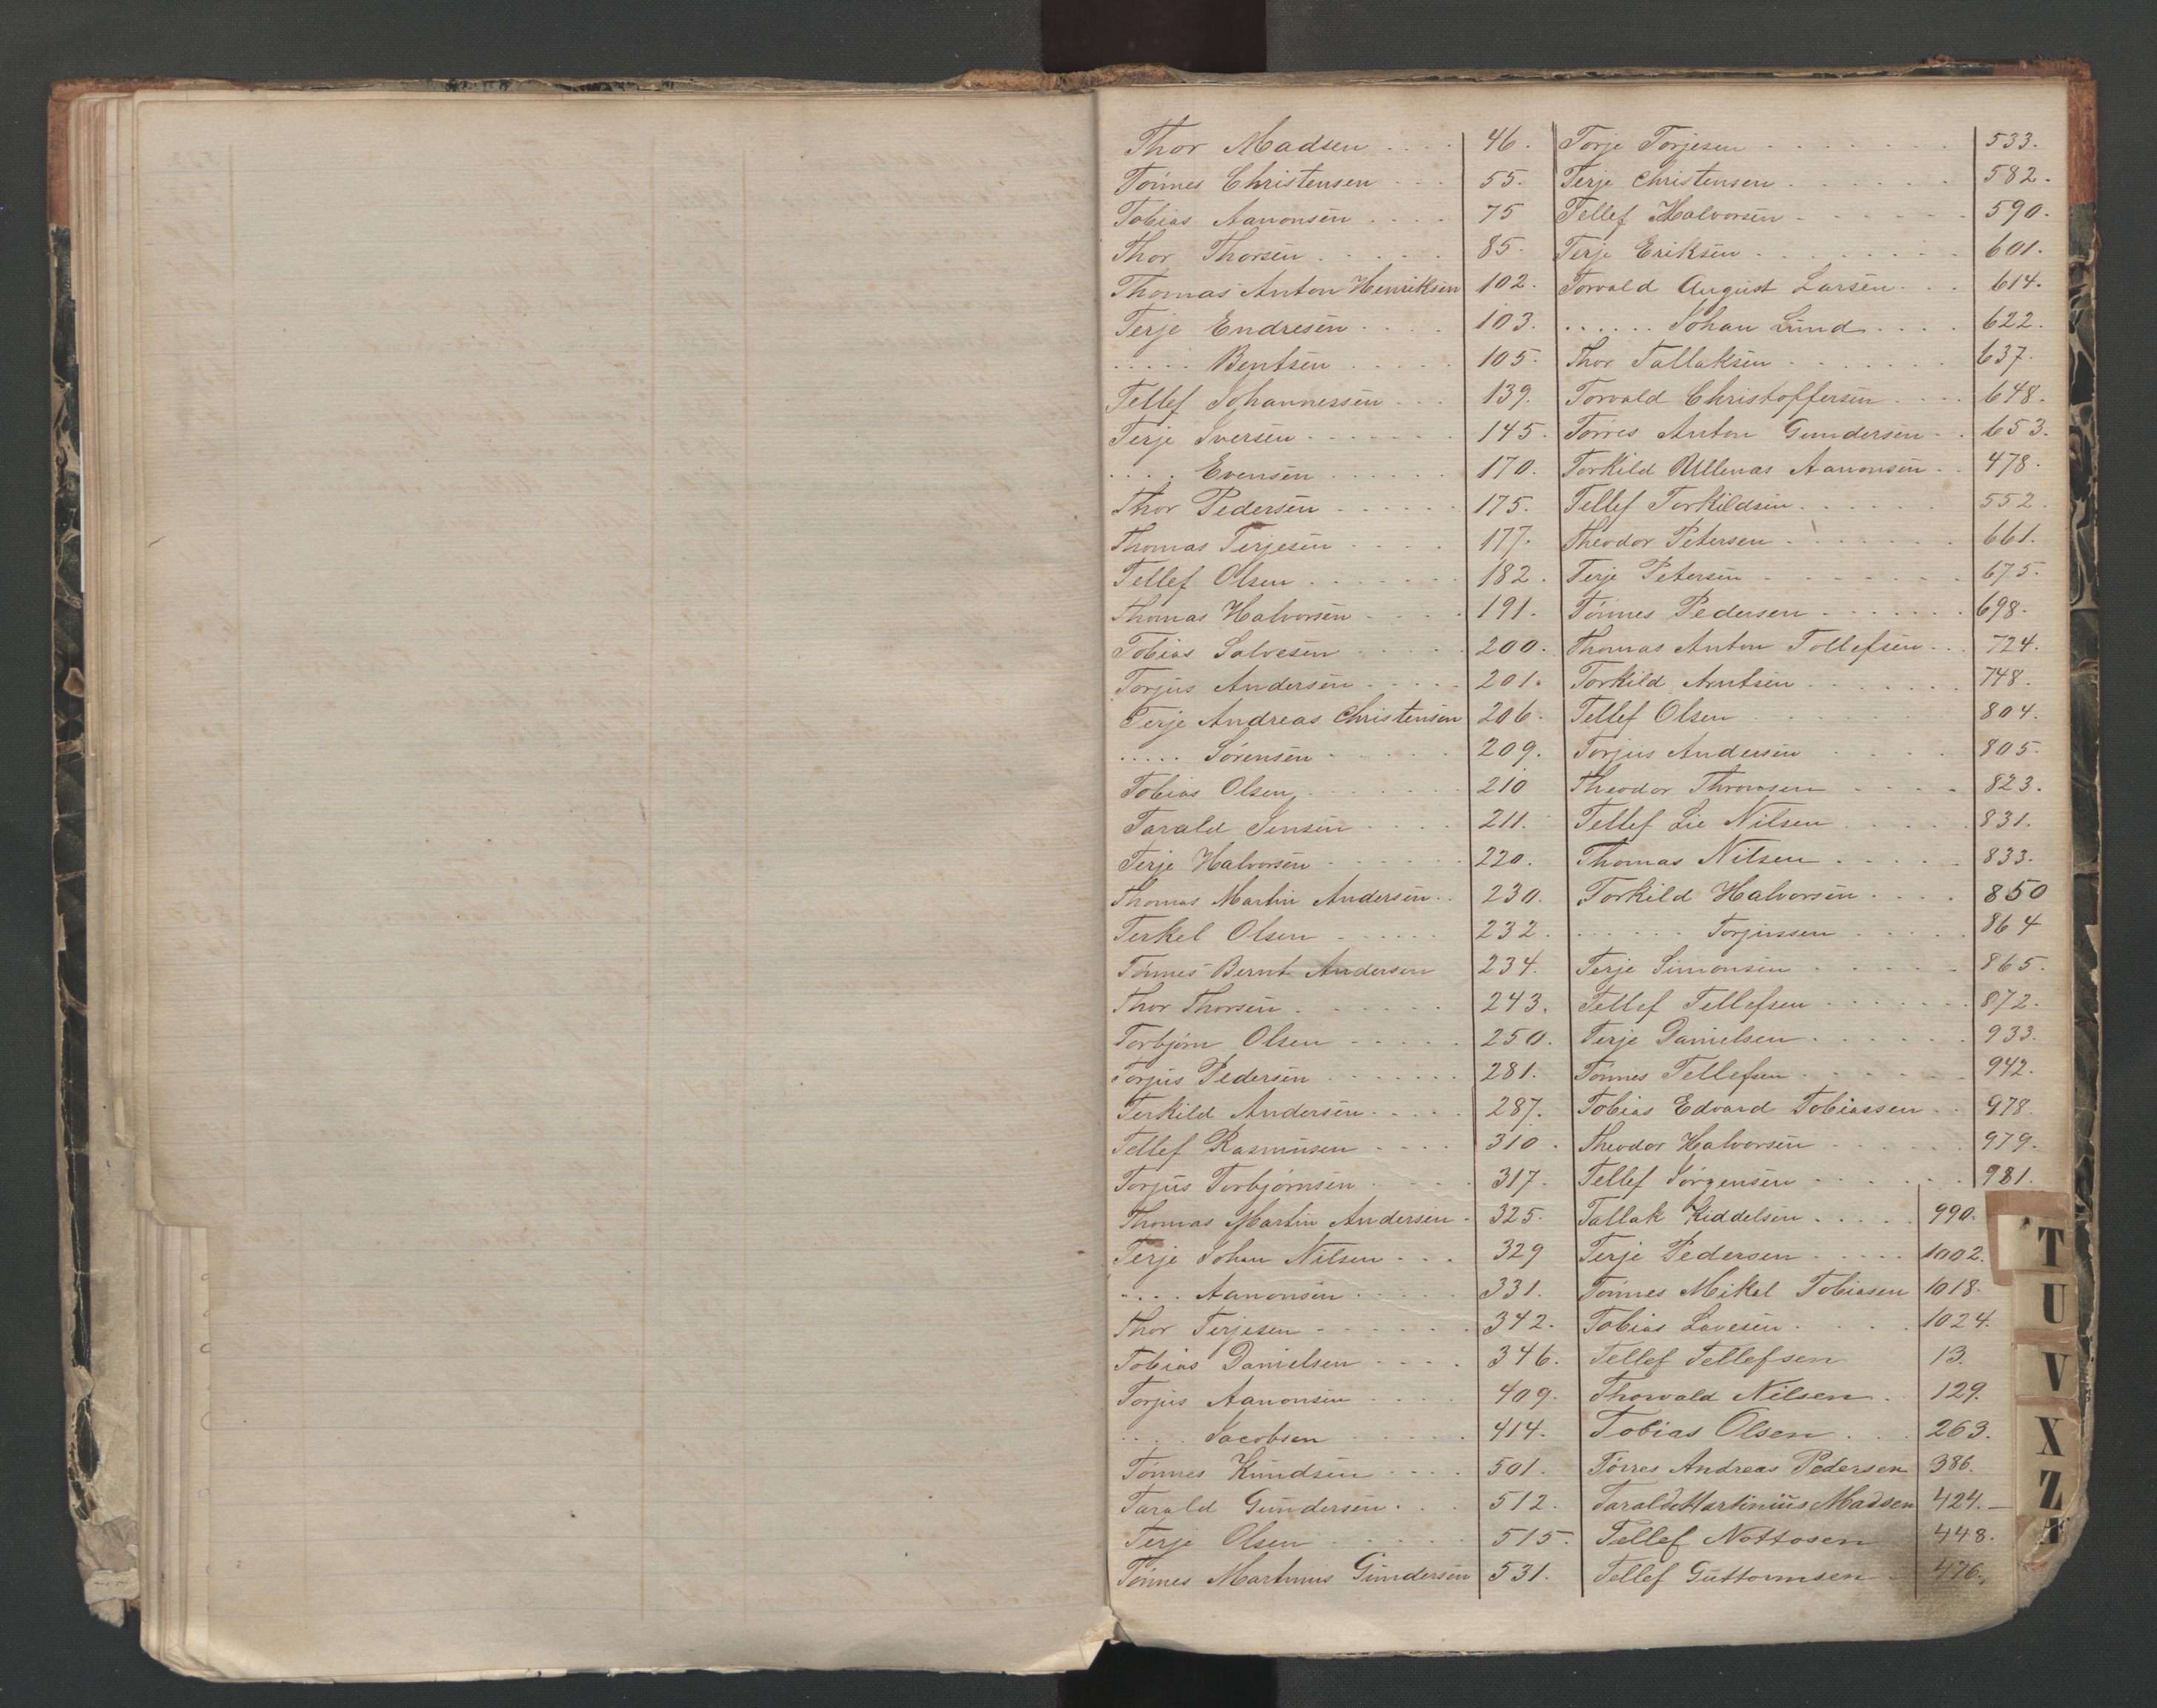 Thor Madsen . . . . 46.
Tönnes Christensen . . . 55.
Tobias Aanonsen . . . . 75
Thor Thorsen . . . . . 85.
Thomas Anton Henriksen 102.
Terje Endresen . . . . 103.
. . . . . Bentsen . . . . . 105.
Tellef Johannessen . . . 139.
Terje Iversen . . . . . . . 145.
. . . . Evensen . . . . . . 170.
Thor Pedersen . . . . . . 175.
Thomas Terjesen . . . . 177.
Tellef Olsen . . . . . . . 182.
Thomas Halvorsen . . . . 191.
Tobias Salvesen . . . . . 200.
Torjus Andersen . . . . . 201.
Terje Andreas Christensen 206.
. . . . . Sörensen . . . . . 209.
Tobias Olsen . . . . . . . 210
Tarald Jensen . . . . 211.
Terje Halvorsen . . . . . . 220.
Thomas Martin Andersen . . 230.
Terkel Olsen . . . . . . 232.
Tönnes Bernt Andersen 234.
Thor Thorsen . . . . . . 243.
Torbjörn Olsen . . . . . 250.
Torjus Pedersen . . . . . . . 281.
Terkild Andersen . . . . . 287.
Tellef Rasmusen . . . . 310.
Torjus Torbjörnsen . . . . 317.
Thomas Martin Andersen . 325.
Terje Johan Nilsen . . . 329
. . . . Aanonsen . . . . . 331.
Thor Terjesen . . . . . . . 342.
Tobias Danielsen . . . . 346.
Torjus Aanonsen . . . . 409.
. . . . Jacobsen . . . . . 414.
Tönnes Knudsen . . . . 501.
Tarald Gundersen . . . 512.
Terje Olsen . . . . . 515.
Tönnes Martinus Gundersen 531.
Torje Torjesen . . . . . . . 533.
Terje Christensen . . . . . . 582.
Tellef Halvorsen . . . . . . 590.
Terje Eriksen . . . . . . . . 601.
Torvald August Larsen . . . 614.
. . . . . . Johan Lund . . . . 622.
Thor Tallaksen . . . . . . . 637.
Torvald Christoffersen . . . . 648.
Törres Anton Gundersen . . 653.
Torkild Ullenas Aanonsen . . 478.
Tellef Torkildsen . . . . . . 552.
Theodor Petersen . . . . . . . 661.
Terje Petersen . . . . . . . 675.
Tönnes Pedersen . . . . . . 698.
Thomas Anton Tollefsen . . . 724.
Torkild Arntsen . . . . . . . 748.
Tellef Olsen . . . . . 804.
Torjus Andersen . . . . 805.
Theodor . . . . 823.
Tellef Lie Nilsen . . . . . 831.
Thomas Nilsen . . . . . 833.
Torkild Halvorsen . . . . 850
. . . . . . Torjussen . . . . . 864
Terje Simonsen . . . . . . 865.
Tellef Tellefsen . . . . . . 872.
Terje Danielsen . . . . . . 933.
Tönnes Tellefsen . . . . . . 942.
Tobias Edvard Tobiassen . . 978.
Theodor Halvorsen . . . . . 979.
Tellef Jörgensen . . . . . . 981.
Tallak Kiddelsen . . . . . 990.
Terje Pedersen . . . . . 1002.
Tönnes Mikel Tobiasen 1018.
Tobias Lavesen . . . . . 1024.
Tellef Tellefsen 13.
Thorvald Nilsen . 129.
Tobias Olsen . . . 263.
Törres Andreas Pedersen 386.
Tarald Martinius Madsen 424. —
Tellef Nottosen 448.
Tellef Guttormsen . 476.
T
U
V
X
Z
Æ